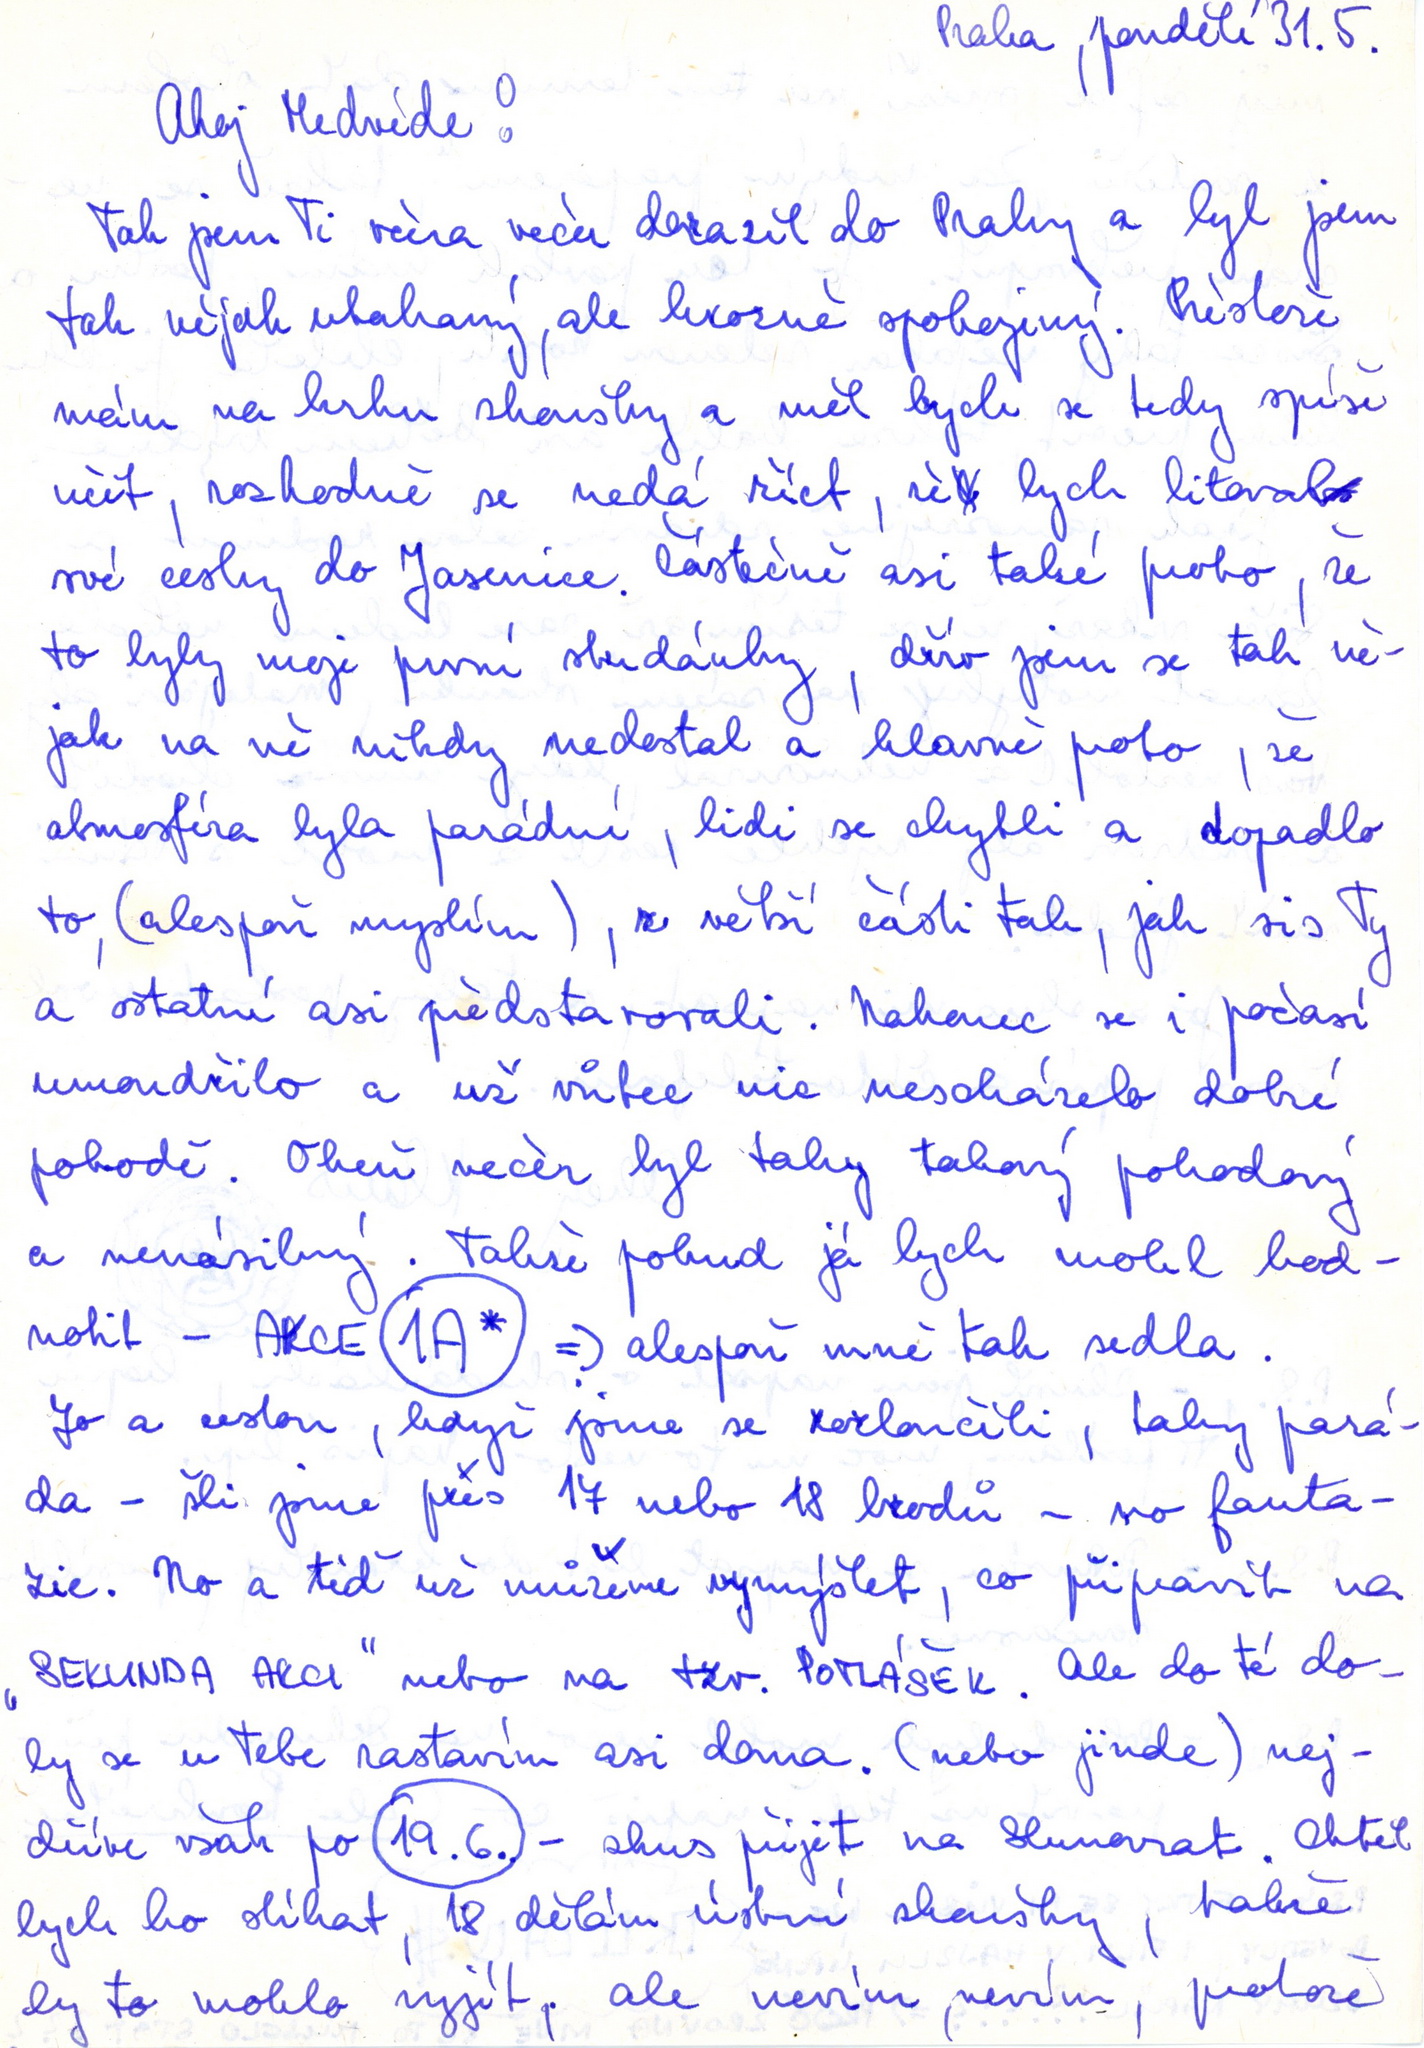 Praha, pondělí 31.5.
Ahoj Medvěde!
Tak jsem Ti včera večer dorazil do Prahy a byl jsem
tak nějak utahaný, ale hrozně spokojený. Přestože
mám na krku zkoušky a měl bych se tedy spíše
učit, rozhodně se nedá říct, že bych litoval
své cesty do Jasenice. Částečně asi také proto, že
to byly moje první studánky, dřív jsem se tak ně-
jak na ně nikdy nedostal a hlavně proto, že
atmosféra byla parádní, lidi se chytli a dopadlo
to, (alespoň myslím), z větší části tak, jak sis Ty
a ostatní asi představovali. Nakonec se i počasí
umoudřilo a už vůbec nic nescházelo dobré
pohodě. Oheň večer byl taky takový pohodový
a nenásilný. Takže pokud já bych mohl hod-
notit – AKCE 1A* => alespoň mně tak sedla.
Jo a cestou, když jsme se rozloučili, taky pará-
da – šli jsme přes 17 nebo 18 brodů – no fanta-
zie. No a teď už můžeme vymýšlet, co připravit na
„SEKUNDA AKCI" nebo na tzv. POTLÁŠEK. Ale do té do-
by se u Tebe zastavím asi doma. (nebo jinde) nej-
dříve však po 19.6. – zkus přijet na Slunovrat. Chtěl
bych ho stíhat, 18 dělám ústní zkoušky, takže
by to mohlo vyjít, ale nevím, nevím, protože